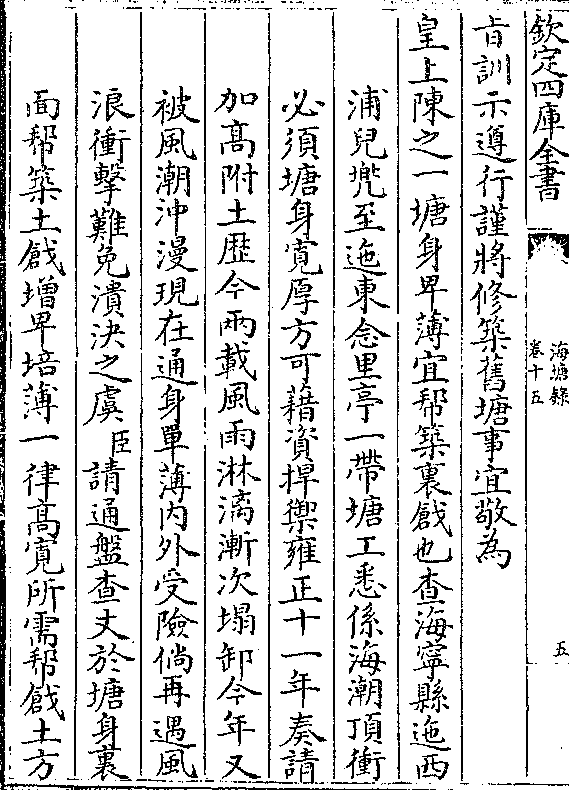 欽定四庫全書
海塘錄
卷十五
五
旨訓示遵行謹將修築舊塘事宜敬為
皇上陳之一塘身卑薄宜幇築裏戧也查海寧縣迤西
浦兒兠至迤東念里亭一帶塘工悉係海潮頂衝
必須塘身寛厚方可藉資捍禦雍正十一年奏請
加髙附土歴今兩載風雨淋漓漸次塌卸今年又
被風潮沖漫現在通身單薄内外受險倘再遇風
浪衝擊難免潰決之虞臣請通盤查丈於塘身裏
面幇築土戧増卑培薄一律髙寛所需幇戧土方